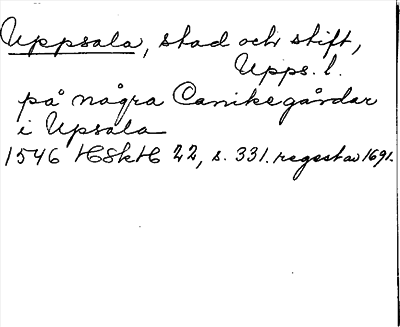 Uppsala, stad och stift,
Upps. l.
på några Canikegårdar
i Upsala
1546 HSkH 22, s. 331. regest av 1691.